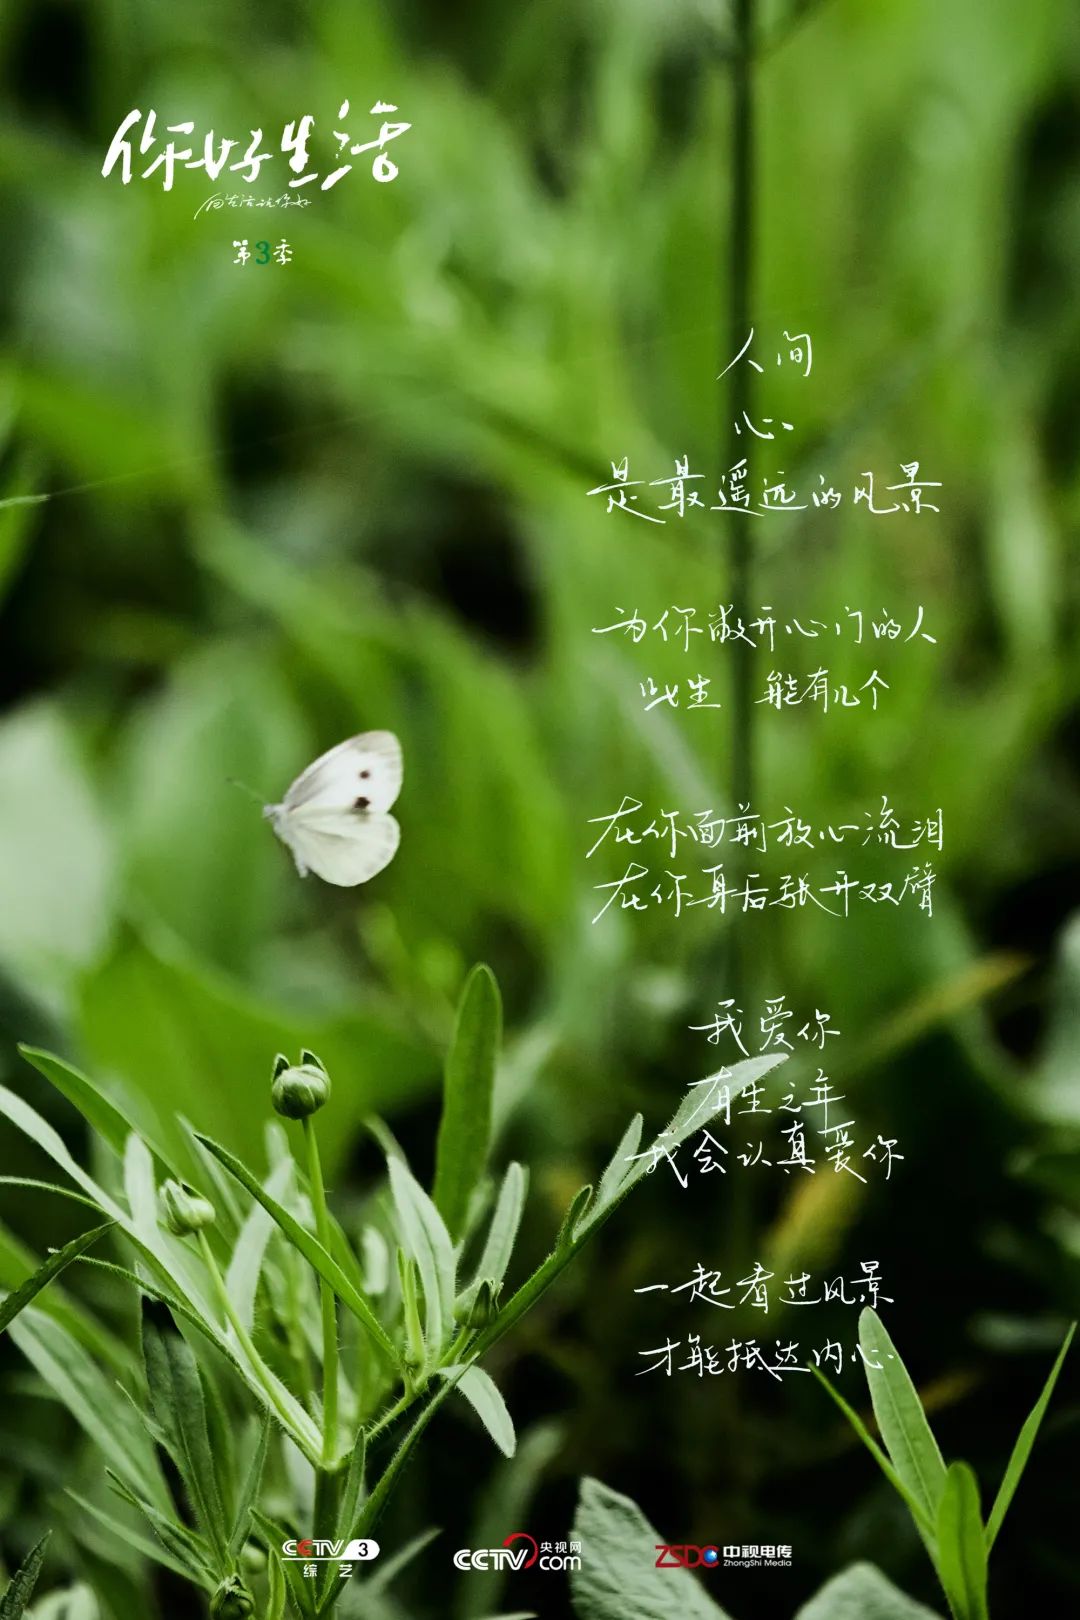 你好生活
向生活说你好
第3季
人间
心
是最遥远的风景
为你敞开心门的人
此生 能有几个
在你面前放心流泪
在你身后张开双臂
我爱你
有生之年
我会认真爱你
一起看过风景
才能抵达内心
CCTV 3
综艺
CCTV 央视网
com
ZSDC 中视电传
ZhongShi Media